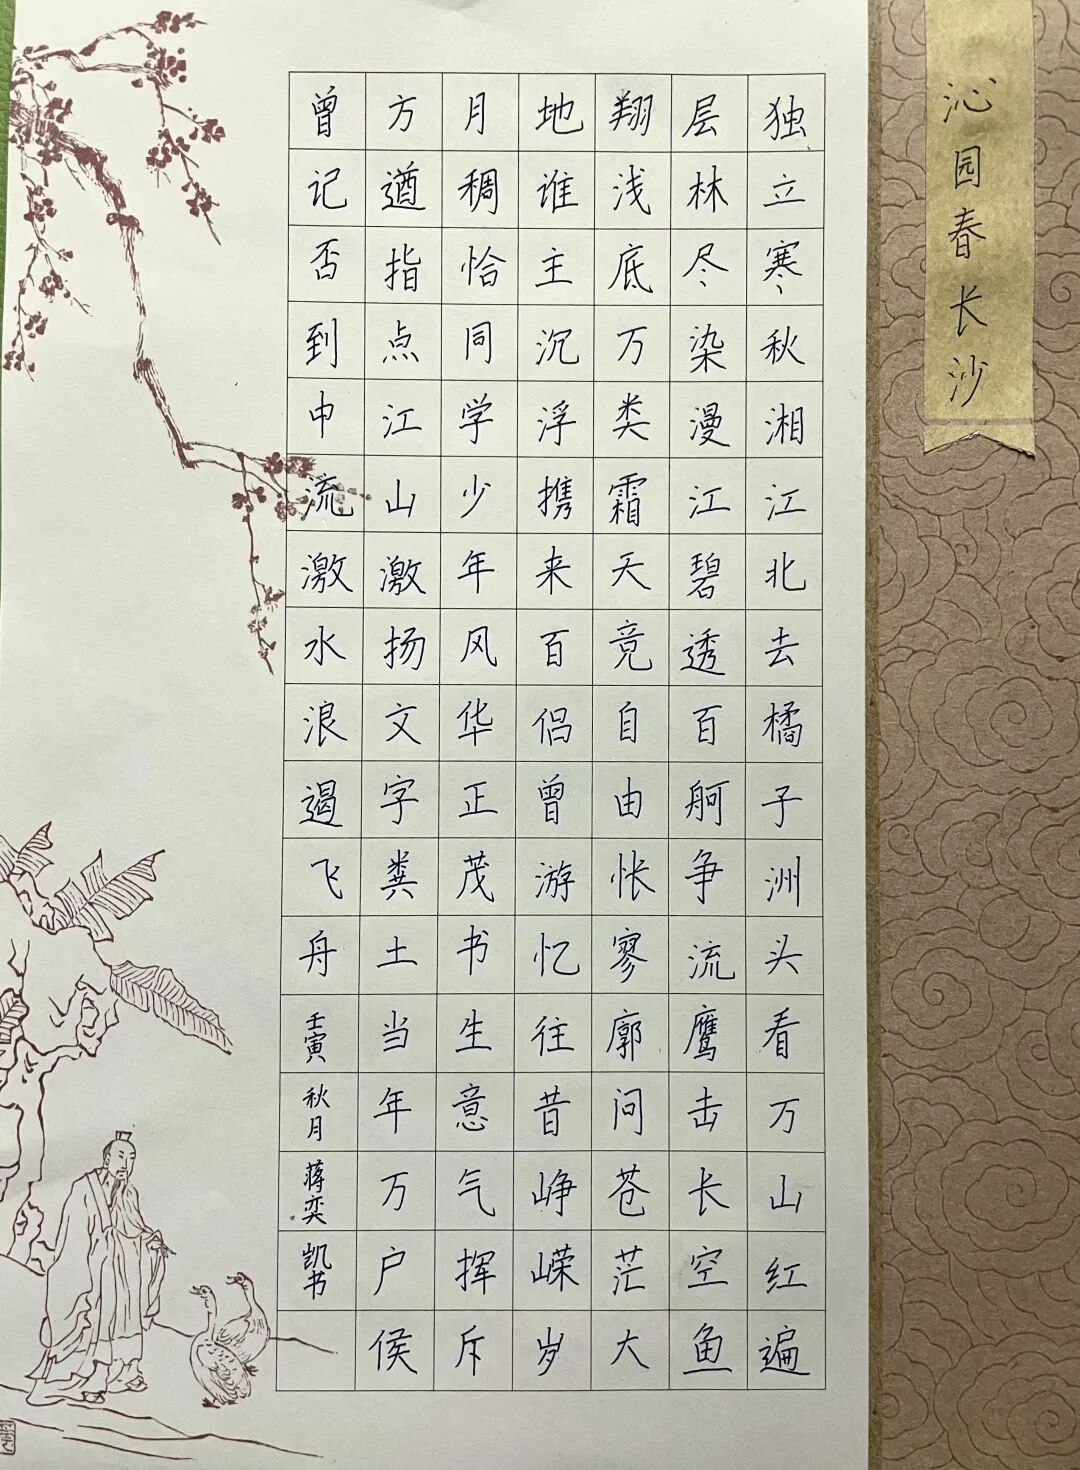 沁园春长沙
独立寒秋湘江北去橘子洲头看万山红遍
层林尽染漫江碧透百舸争流鹰击长空鱼
翔浅底万类霜天竞自由怅寥廓问苍茫大
地谁主沉浮携来百侣曾游忆往昔峥嵘岁
月稠恰同学少年风华正茂书生意气挥斥
方遒指点江山激扬文字粪土当年万户侯
曾记否到中流激水浪遏飞舟壬寅秋月蒋奕凯书